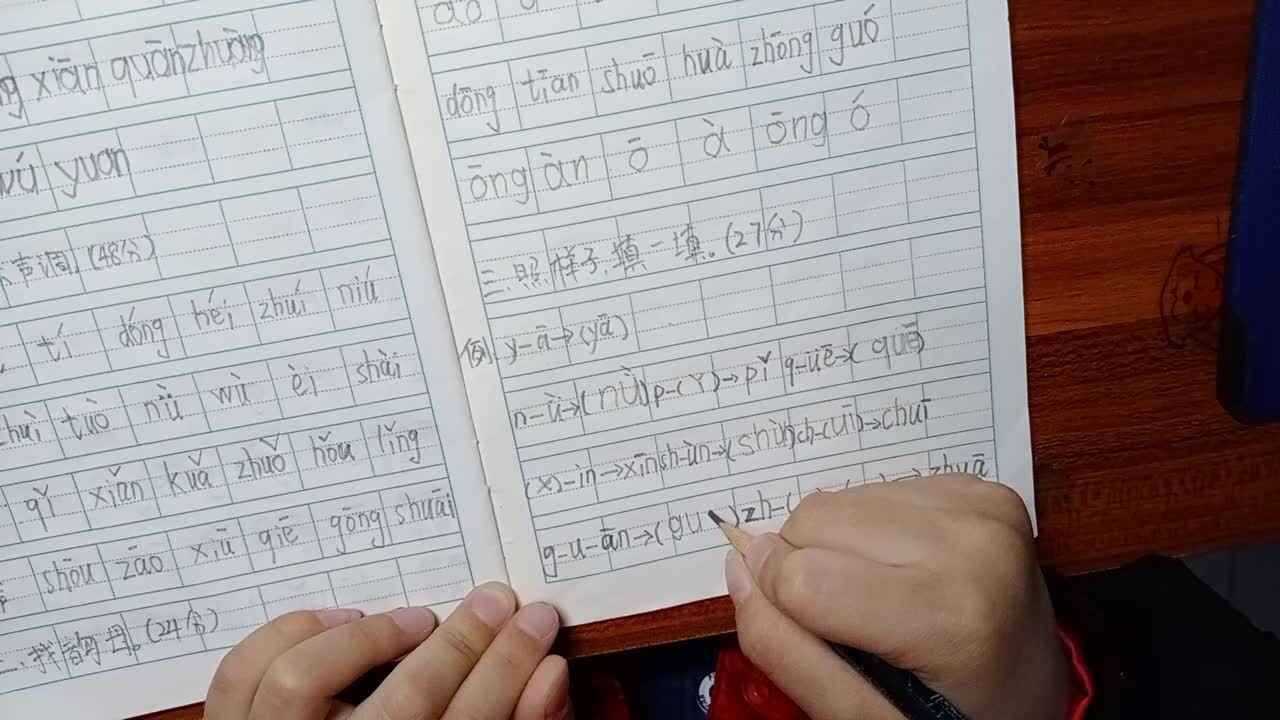 xiān quānzhuàng
yuan
声调.(48分)
tí dóng héi zhuí niú
tuò nǜ wù èi shài
qǐ xiǎn kuǎ zhuǒ hǒu lǐng
shōu zāo xiū qiē gōng shuāi
二、找韵母.(24分)
dōng tiān shuō huà zhōng guó
ōng àn ō à ōng ó
三、照样子,填一填。(27分)
例 y-ā→(yā)
n-ǜ→(nǜ) p-(ǐ)→pǐ q-üē→(quē)
(x)-in→xīn sh-ùn→(shùn) ch-(uī)→chuī
g-u-ān→(gu ) zh-( →zhuā